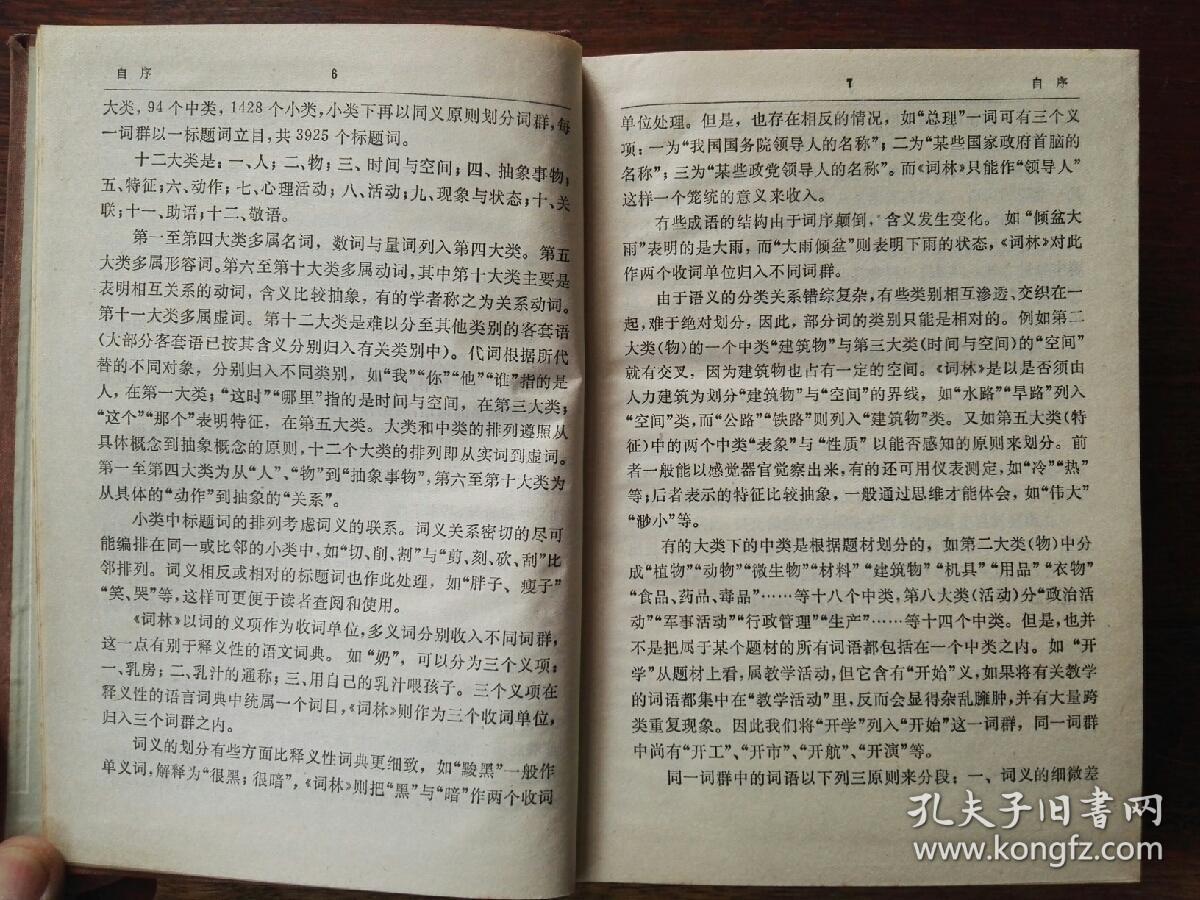 自 序 6
大类，94个中类，1428个小类，小类下再以同义原则划分词群，每
一词群以一标题词立目，共3925个标题词。
十二大类是：一、人；二、物；三、时间与空间；四、抽象事物；
五、特征；六、动作；七、心理活动；八、活动；九、现象与状态；十、关
联；十一、助语；十二、敬语。
第一至第四大类多属名词，数词与量词列入第四大类。第五
大类多属形容词。第六至第十大类多属动词，其中第十大类主要是
表明相互关系的动词，含义比较抽象，有的学者称之为关系动词。
第十一大类多属虚词。第十二大类是难以分至其他类别的客套语
（大部分客套语已按其含义分别归入有关类别中）。代词根据所代
替的不同对象，分别归入不同类别，如“我”“你”“他”“谁”指的是
人，在第一大类；“这时”“哪里”指的是时间与空间，在第三大类；
“这个”“那个”表明特征，在第五大类。大类和中类的排列遵照从
具体概念到抽象概念的原则，十二个大类的排列即从实词到虚词。
第一至第四大类为从“人”、“物”到“抽象事物”，第六至第十大类为
从具体的“动作”到抽象的“关系”。
小类中标题词的排列考虑词义的联系。词义关系密切的尽可
能编排在同一或比邻的小类中，如“切、削、割”与“剪、刻、砍、刮”比
邻排列。词义相反或相对的标题词也作此处理，如“胖子、瘦子”
“笑、哭”等，这样可更便于读者查阅和使用。
《词林》以词的义项作为收词单位，多义词分别收入不同词群，
这一点有别于释义性的语文词典。如“奶”，可以分为三个义项：
一、乳房；二、乳汁的通称；三、用自己的乳汁喂孩子。三个义项在
释义性的语言词典中统属一个词目，《词林》则作为三个收词单位，
归入三个词群之内。
词义的划分有些方面比释义性词典更细致，如“黢黑”一般作
单义词，解释为“很黑；很暗”，《词林》则把“黑”与“暗”作两个收词
7 自 序
单位处理。但是，也存在相反的情况，如“总理”一词可有三个义
项：一为“我国国务院领导人的名称”；二为“某些国家政府首脑的
名称”；三为“某些政党领导人的名称”。而《词林》只能作“领导人”
这样一个笼统的意义来收入。
有些成语的结构由于词序颠倒，含义发生变化。如“倾盆大
雨”表明的是大雨，而“大雨倾盆”则表明下雨的状态，《词林》对此
作两个收词单位归入不同词群。
由于语义的分类关系错综复杂，有些类别相互渗透、交织在一
起，难于绝对划分，因此，部分词的类别只能是相对的。例如第二
大类（物）的一个中类“建筑物”与第三大类（时间与空间）的“空间”
就有交叉，因为建筑物也占有一定的空间。《词林》是以是否须由
人力建筑为划分“建筑物”与“空间”的界线，如“水路”“旱路”列入
“空间”类，而“公路”“铁路”则列入“建筑物”类。又如第五大类（特
征）中的两个中类“表象”与“性质”以能否感知的原则来划分。前
者一般能以感觉器官觉察出来，有的还可用仪表测定，如“冷”“热”
等；后者表示的特征比较抽象，一般通过思维才能体会，如“伟大”
“渺小”等。
有的大类下的中类是根据题材划分的，如第二大类（物）中分
成“植物”“动物”“微生物”“材料”“建筑物”“机具”“用品”“衣物”
“食品、药品、毒品”……等十八个中类，第八大类（活动）分“政治活
动”“军事活动”“行政管理”“生产”……等十四个中类。但是，也并
不是把属于某个题材的所有词语都包括在一个中类之内。如“开
学”从题材上看，属教学活动，但它含有“开始”义，如果将有关教学
的词语都集中在“教学活动”里，反而会显得杂乱臃肿，并有大量跨
类重复现象。因此我们将“开学”列入“开始”这一词群，同一词群
中尚有“开工”、“开市”、“开航”、“开演”等。
同一词群中的词语以下列三原则来分段：一、词义的细微差
孔夫子旧书网
www.kongfz.com